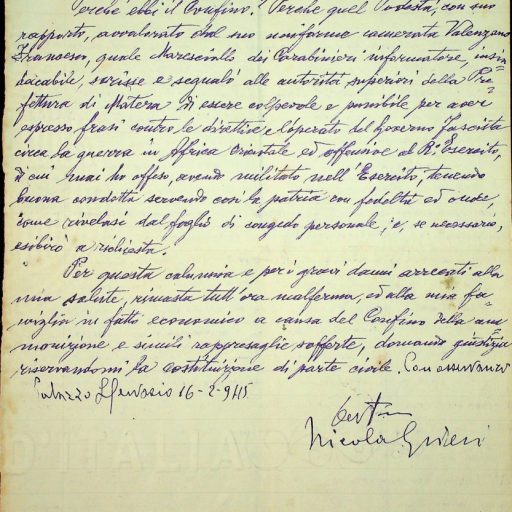 Perché ebbi il Confino? Perché quel Podestà, con suo
rapporto, avvalorato dal suo uniforme camerata Valenzano
Francesco, quale Maresciallo dei Carabinieri informatore, insin
dacabile, scrisse e segnalò alle autorità superiori della Pre=
fettura di Matera di essere colpevole e punibile per aver
espresso frasi contro le direttive e l'operato del Governo Fascista
circa la guerra in Africa Orientale ed offensive al R. Esercito,
di cui mai ho offeso, avendo militato nell'Esercito, tenendo
buona condotta servendo con la patria con fedeltà ed onore,
come rivelasi dal foglio di congedo personale, e, se necessario,
esibirò a richiesta.
Per questa calunnia e per i gravi danni arrecati alla
mia salute, rimasta tutt'ora malferma, ed alla mia fa=
miglia in fatto economico a causa del Confino della am
monizione e simili rappresaglie sofferte, domando giustizia
riservandomi la costituzione di parte civile. Con osservanza
Palazzo S. Gervasio 16-2-945
Nicola